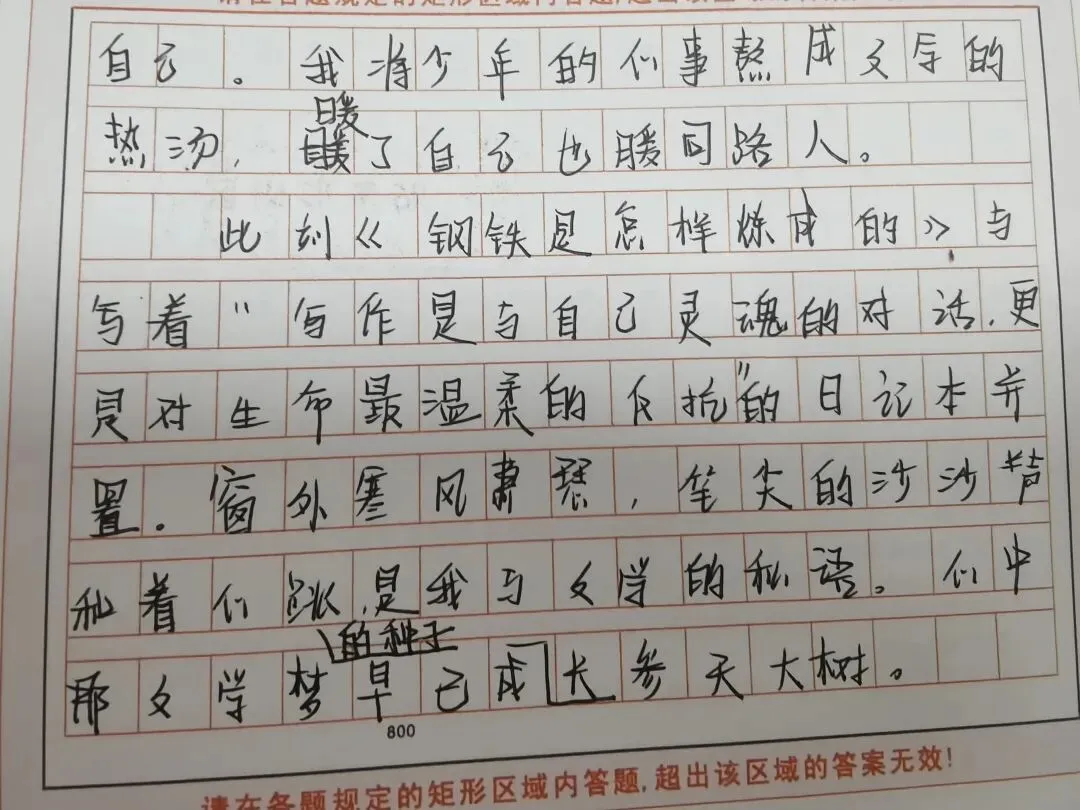 请在各题规定的矩形区域内答题,超出该区域的答案无效
自己。我将少年的心事熬成文学的
热汤，暖了自己也暖同路人。
此刻《钢铁是怎样炼成的》与
写着"写作是与自己灵魂的对话，更
是对生命最温柔的反抗"的日记本并
置。窗外寒风萧瑟，笔尖的沙沙声
和着心跳，是我与文学的私语。心中
那文学梦的种子早已成长参天大树。
800
请在各题规定的矩形区域内答题,超出该区域的答案无效!